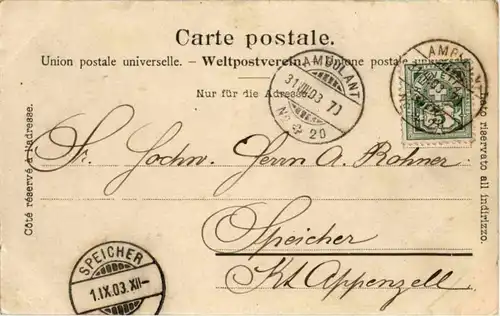 Carte postale.
Union postale universelle. – Weltpostverein. – Unione postale
Nur für die Adresse.
AMBULANT
31.VIII.03 7
No 20
AMBULANT
Côté réservé à l'adresse.
Lato riservato all indirizzo.
Sr. Hochw. Herrn A. Rohner
Speicher
Kt. Appenzell.
SPEICHER
1.IX.03.XII–